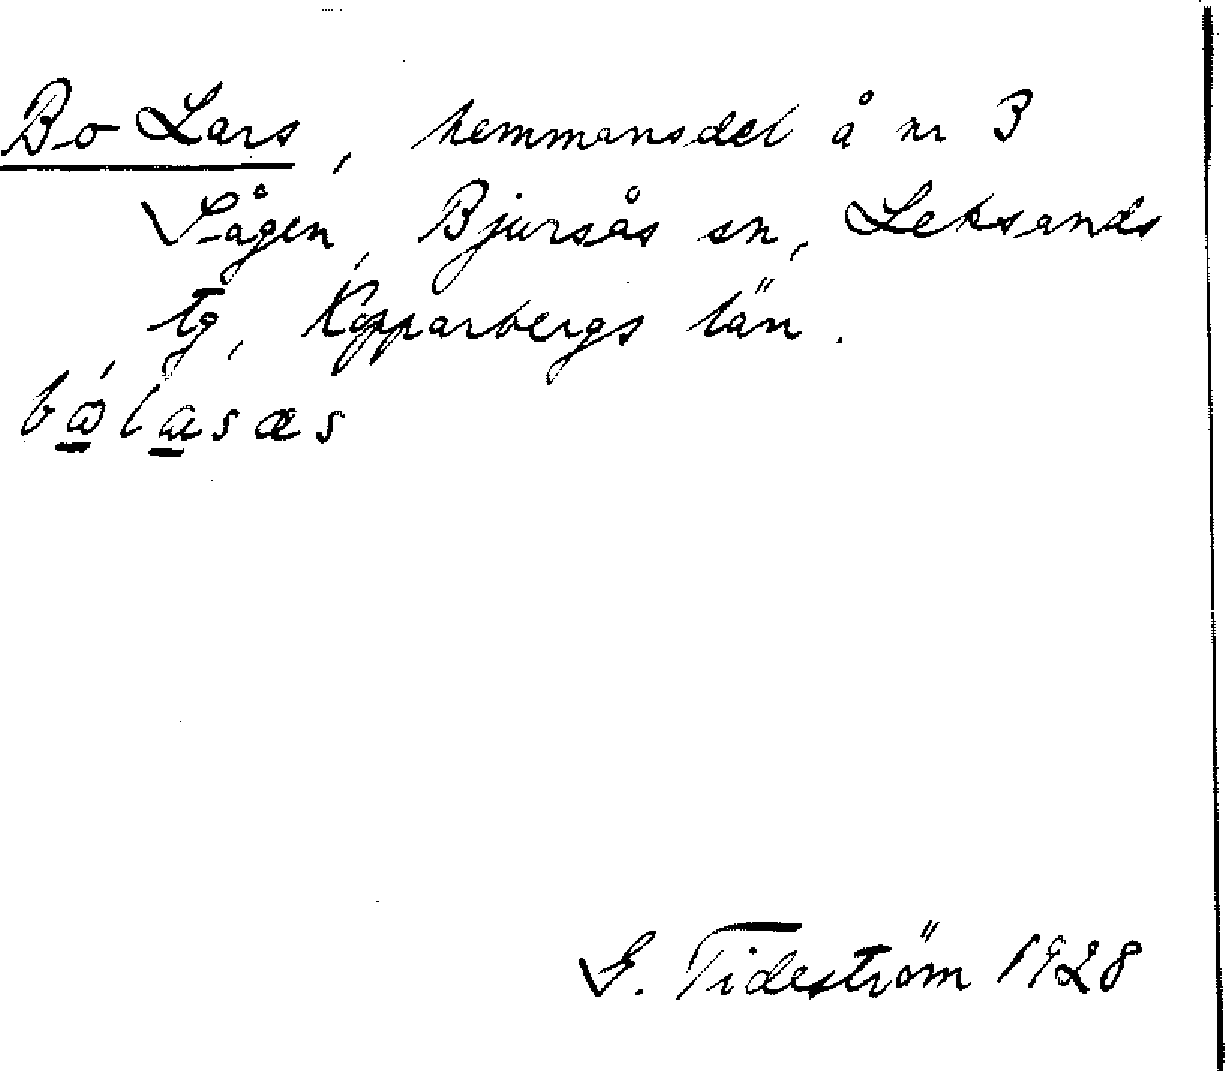 Bo Lars, hemmansdel å nr 3
Sågen, Bjursås sn, Leksands
tg, Kopparbergs län.
G. Tideström 1928